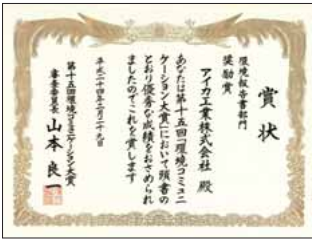 賞状
環境報告書部門
奨励賞
アイカ工業株式会社 殿
あなたは第十五回「環境コミュニ
ケーション大賞」において頭書の
とおり優秀な成績をおさめられ
ましたのでこれを賞します
平成二十四年二月二十九日
第十五回環境コミュニケーション大賞
審査委員長 山本良一